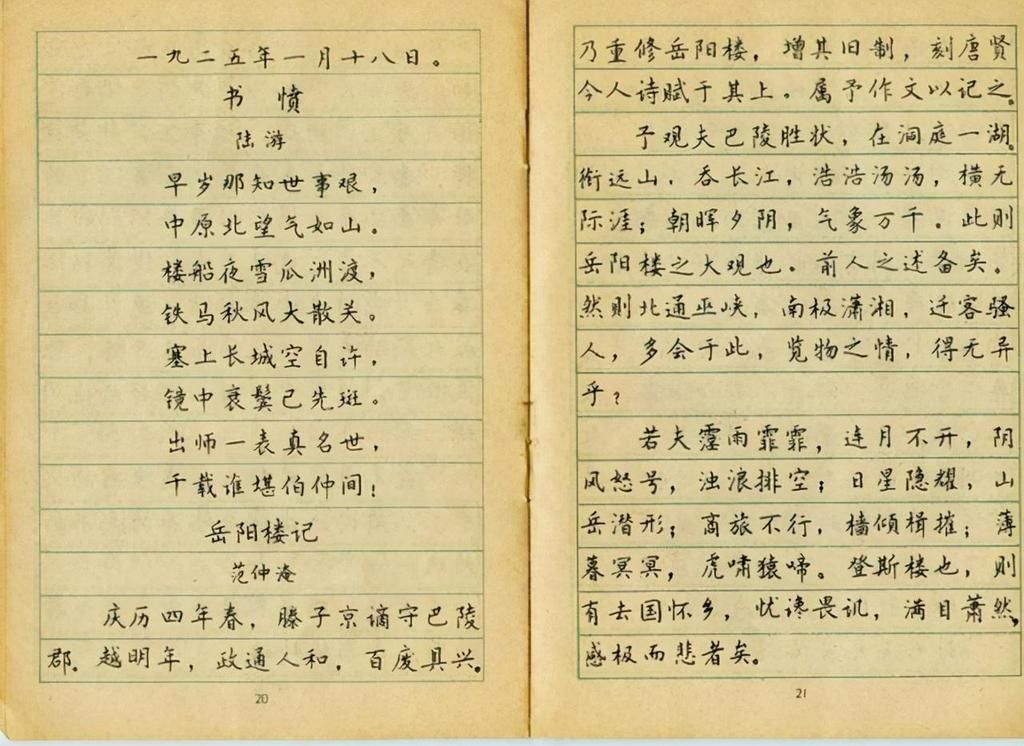 一九二五年一月十八日。
书 愤
陆游
早岁那知世事艰，
中原北望气如山。
楼船夜雪瓜洲渡，
铁马秋风大散关。
塞上长城空自许，
镜中衰鬓已先斑。
出师一表真名世，
千载谁堪伯仲间！
岳阳楼记
范仲淹
庆历四年春，滕子京谪守巴陵
郡．越明年，政通人和，百废具兴。
20
乃重修岳阳楼，增其旧制，刻唐贤
今人诗赋于其上。属予作文以记之。
予观夫巴陵胜状，在洞庭一湖。
衔远山．吞长江，浩浩汤汤，横无
际涯；朝晖夕阴，气象万千。此则
岳阳楼之大观也．前人之述备矣。
然则北通巫峡，南极潇湘，迁客骚
人，多会于此，览物之情，得无异
乎？
若夫霪雨霏霏，连月不开，阴
风怒号，浊浪排空；日星隐耀，山
岳潜形；商旅不行，樯倾楫摧；薄
暮冥冥，虎啸猿啼。登斯楼也，则
有去国怀乡，忧谗畏讥，满目萧然，
感极而悲者矣。
21